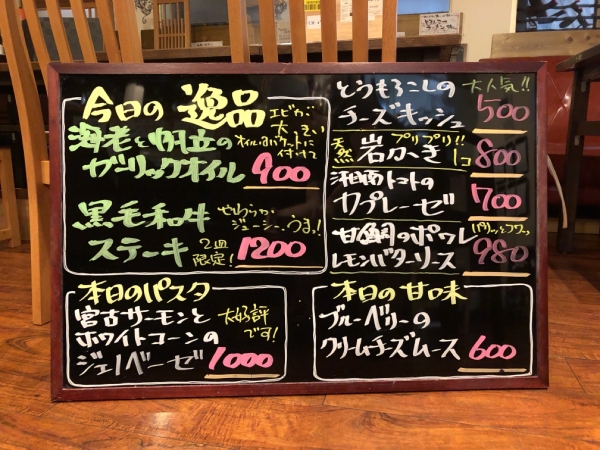 今日の 逸品
海老と帆立の
ガーリックオイル 900
エビが
大きい
オイルはバケットに
付けて
黒毛和牛
ステーキ 1200
ジューシー、うまっ!
2皿
限定!
とうもろこしの 大人気!!
チーズキッシュ 500
天然 岩がき プリプリ!! 1コ 800
湘南トマトの
カプレーゼ 700
甘鯛のポワレ
レモンバターソース 980
本日のパスタ
宮古サーモンと
ホワイトコーンの
ジェノベーゼ 1000
大好評
です!
本日の甘味
ブルーベリーの
クリームチーズムース 600